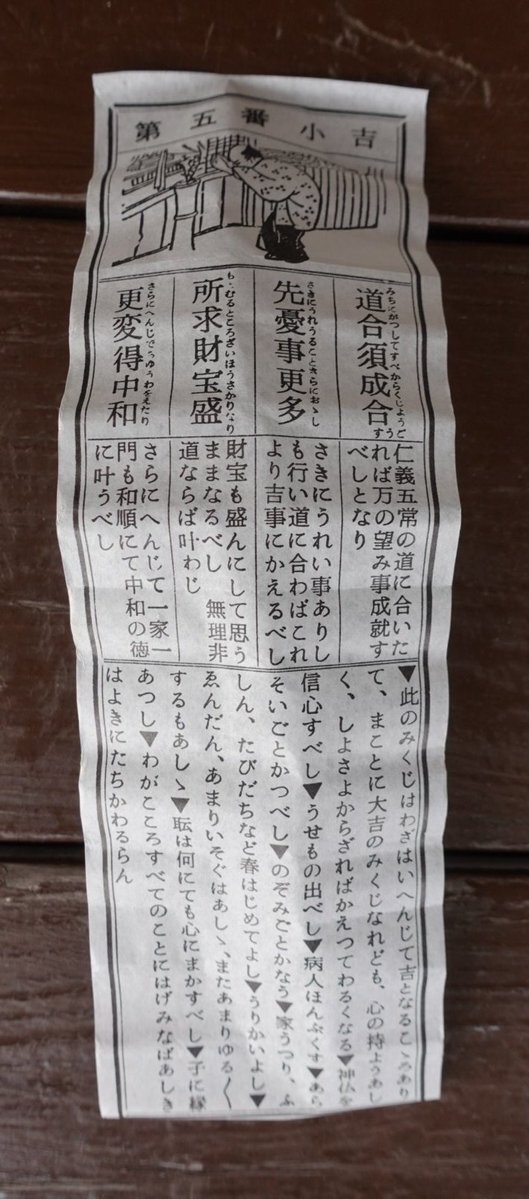 第五番小吉
道合須成合
みちにがつしてすべからくじようごう
先憂事更多
さきにうれうることさらにおゝし
所求財宝盛
もとむるところざいほうさかりなり
更変得中和
さらにへんじてちゆうわをえたり
仁義五常の道に合いた
れば万の望み事成就す
べしとなり
さきにうれい事ありし
も行い道に合わばこれ
より吉事にかえるべし
財宝も盛んにして思う
ままなるべし　無理非
道ならば叶わじ
さらにへんじて一家一
門も和順にて中和の徳
に叶うべし
▼此のみくじはわざはいへんじて吉となるこゝろあり
て、まことに大吉のみくじなれども、心の持ようあし
く、しよさよからざればかえつてわるくなる▼神仏を
信心すべし▼うせもの出べし▼病人ほんぷくす▼あら
そいごとかつべし▼のぞみごとかなう▼家うつり、ふ
しん、たびだちなど春はじめてよし▼うりかいよし▼
ゑんだん、あまりいそぐはあしゝ、またあまりゆる〱
するもあしゝ▼耺は何にても心にまかすべし▼子に縁
あつし▼わがこころすべてのことにはげみなばあしき
はよきにたちかわるらん